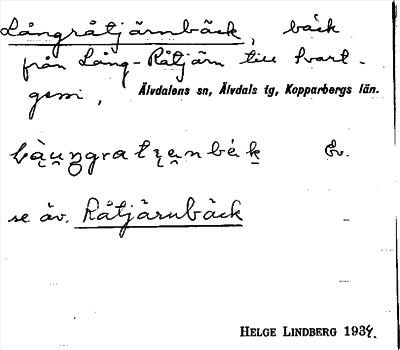 Långråtjärnbäck, bäck
från Lång-Råtjärn till Svart-
gssi,
Älvdalens sn, Älvdals tg, Kopparbergs län.
Ev.
se äv. Råtjärnbäck
HELGE LINDBERG 1934.